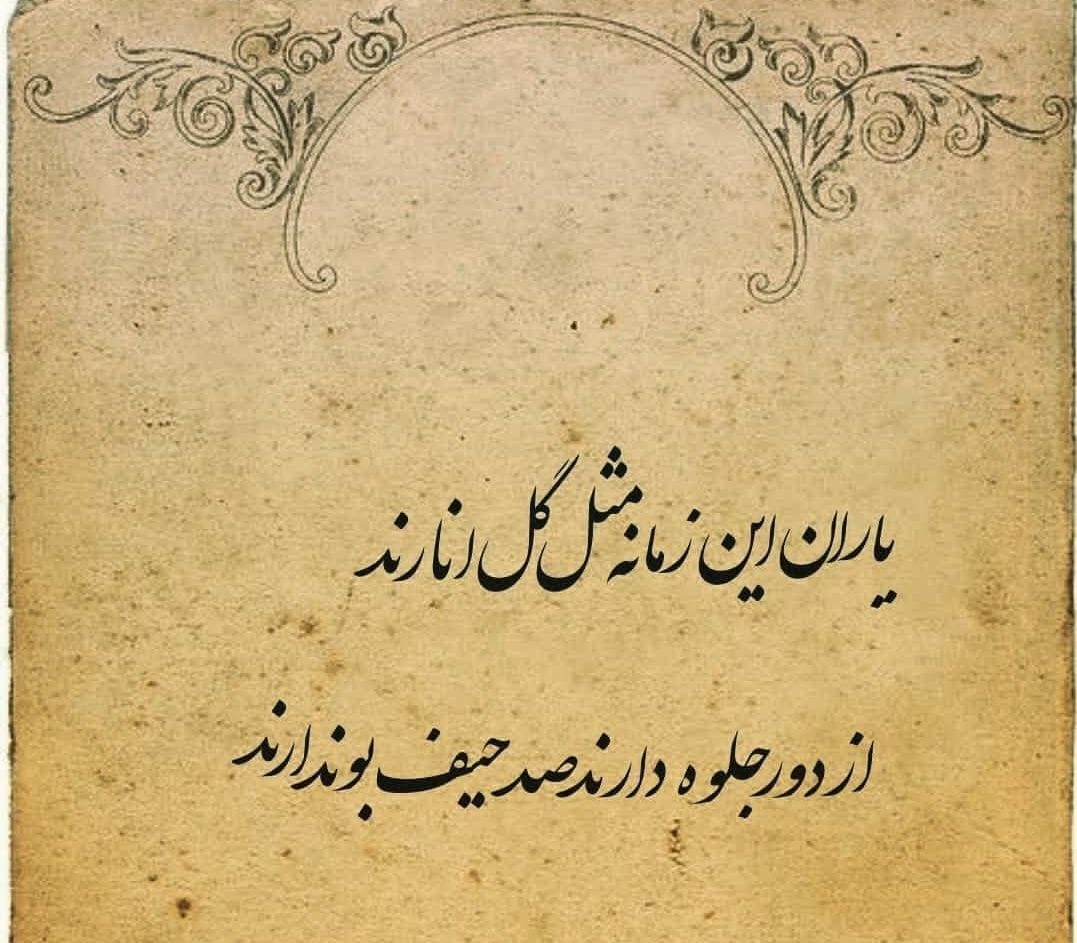 یاران این زمانه مثل گل انارند
از دور جلوه دارند صد حیف بو ندارند